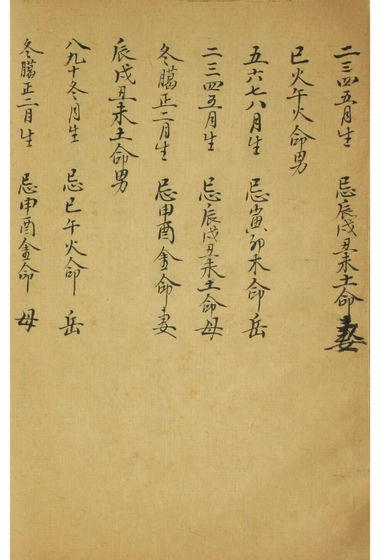 二三四五月生 忌辰戌丑未土命妻
巳火午火命男
五六七八月生 忌寅卯木命岳
二三四五月生 忌辰戌丑未土命母
冬臈正二月生 忌申酉金命妻
辰戌丑未土命男
八九十冬月生 忌巳午火命岳
冬臈正二月生 忌申酉金命母